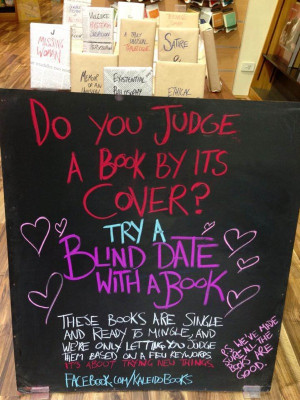 MISSING
WOMAN
SATIRE
MEMOIR
OF AN
EXISTENTIAL
PHILOSOPHY
ETHICAL
DO YOU JUDGE
A BOOK BY ITS
COVER?
TRY A
BLIND DATE
WITH A BOOK
THESE BOOKS ARE SINGLE
AND READY TO MINGLE, AND
WE'RE ONLY LETTING YOU JUDGE
THEM BASED ON A FEW KEYWORDS
IT'S ABOUT TRYING NEW THINGS.
FACEBOOK.COM/KALEIDOBOOKS
PS WE'VE MADE
SURE ALL THE
BOOKS ARE
GOOD.